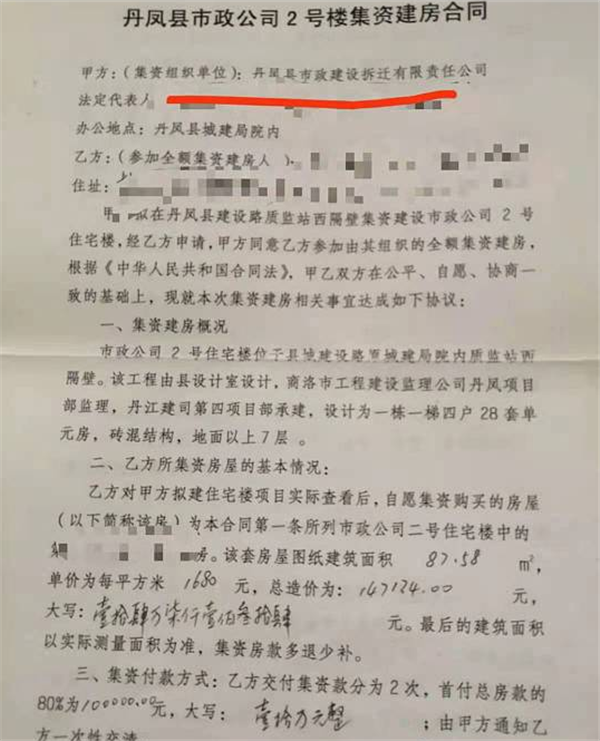 丹凤县市政公司2号楼集资建房合同
甲方：(集资组织单位)：丹凤县市政建设拆迁有限责任公司
法定代表人
办公地点：丹凤县城建局院内
乙方：(参加全额集资建房人)
住址：
甲 拟在丹凤县建设路质监站西隔壁集资建设市政公司2号
住宅楼，经乙方申请，甲方同意乙方参加由其组织的全额集资建房，
根据《中华人民共和国合同法》，甲乙双方在公平、自愿、协商一
致的基础上，现就本次集资建房相关事宜达成如下协议：
一、集资建房概况
市政公司2号住宅楼位于县城建设路原城建局院内质监站西
隔壁。该工程由县设计室设计，商洛市工程建设监理公司丹凤项目
部监理，丹江建司第四项目部承建，设计为一栋一梯四户28套单
元房，砖混结构，地面以上7层。
二、乙方所集资房屋的基本情况：
乙方对甲方拟建住宅楼项目实际查看后，自愿集资购买的房屋
(以下简称该房)为本合同第一条所列市政公司二号住宅楼中的
房。该套房屋图纸建筑面积 87.58 m²，
单价为每平方米 1680 元，总造价为：147134.00 元，
大写：壹拾肆万柒仟壹佰叁拾肆 元。最后的建筑面积
以实际测量面积为准，集资房款多退少补。
三、集资付款方式：乙方交付集资款分为2次，首付总房款的
80%为100000.00元，大写：壹拾万元整；由甲方通知乙
方一次性交清